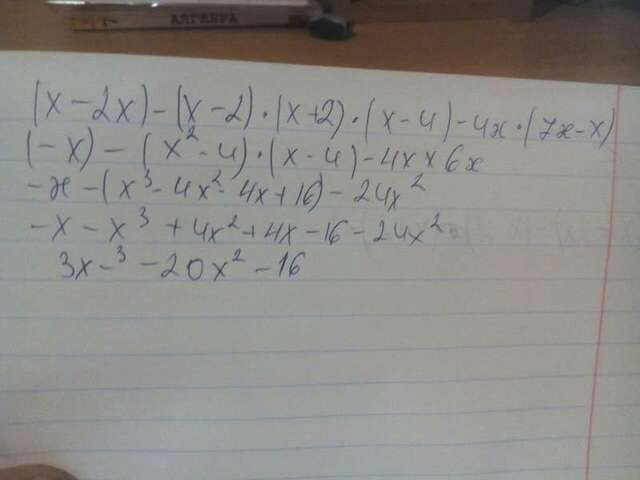 АЛГЕБРА
(x-2x)-(x-2)·(x+2)·(x-4)-4x·(7x-x)
(-x)-(x²-4)·(x-4)-4x×6x
-x-(x³-4x²-4x+16)-24x²
-x-x³+4x²+4x-16-24x²
3x-³-20x²-16